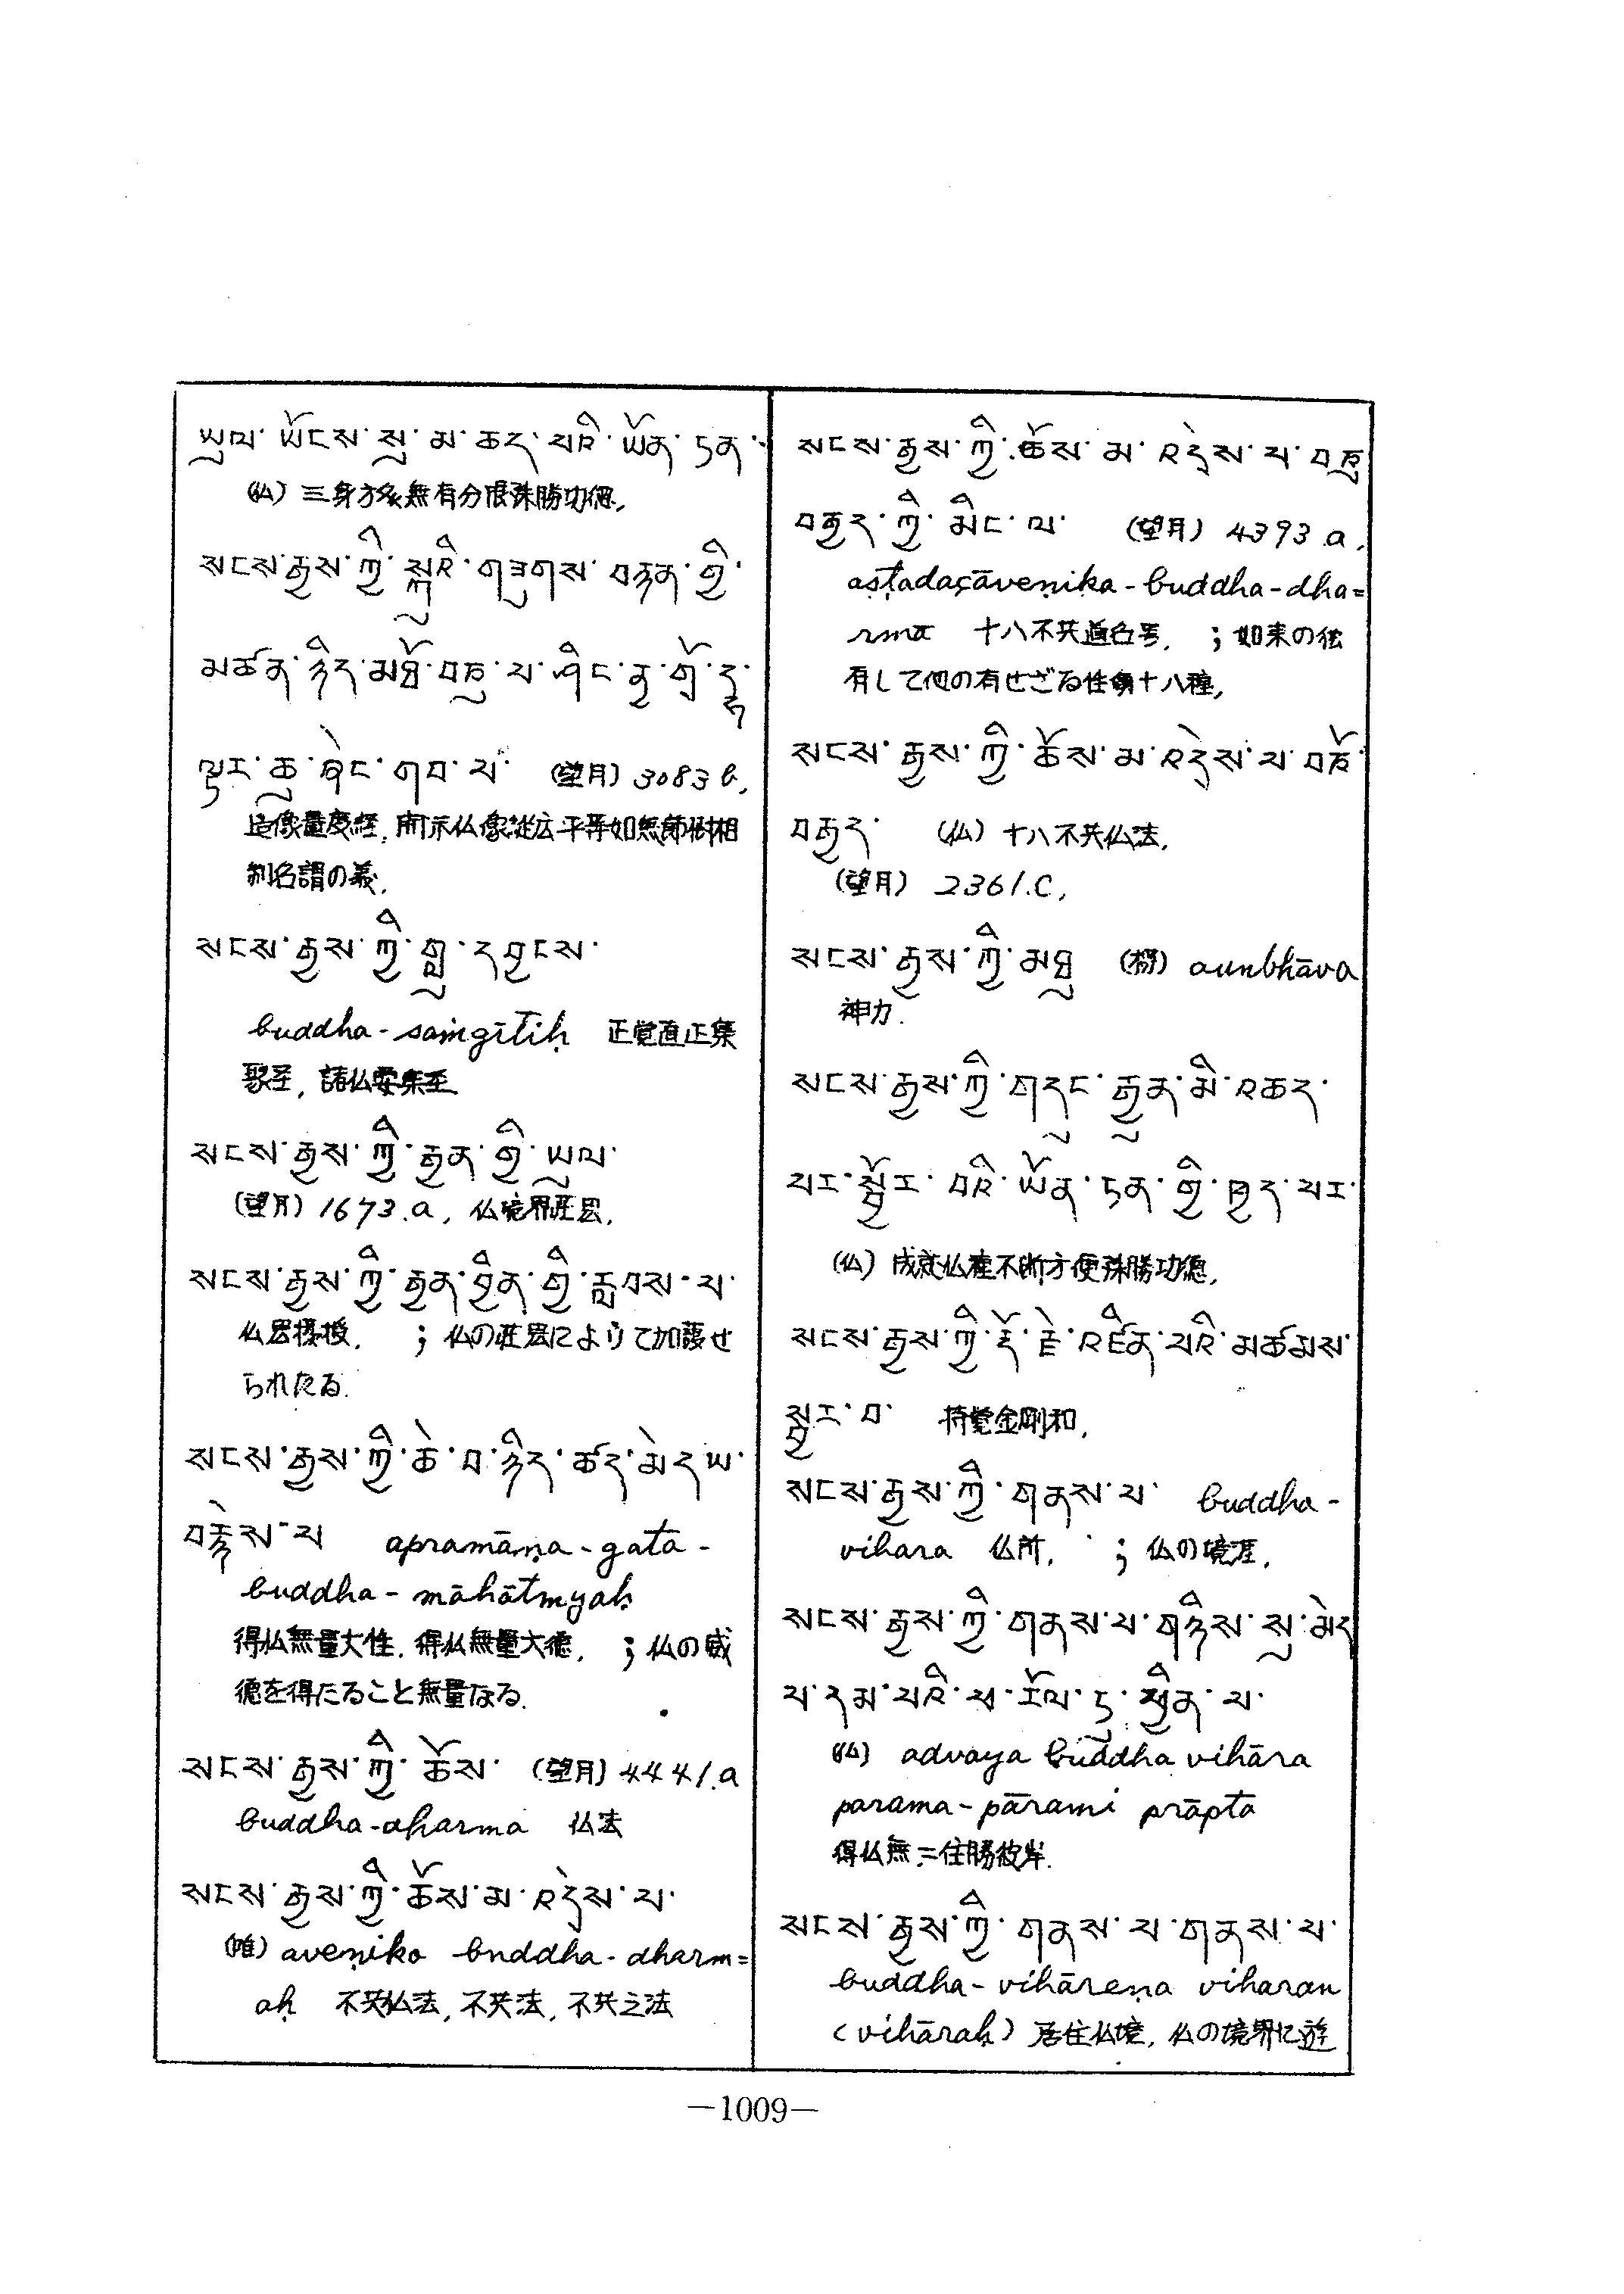 ཡུལ་ཡོངས་སུ་མ་ཆད་པའི་ཡོན་ཏན་
(仏) 三身方多無有分限殊勝功徳,
སངས་རྒྱས་ཀྱི་སྐུའི་གཟུགས་བརྙན་གྱི་
མཚན་ཉིད་མཐོ་བཅུ་པ་ཤིང་ནྱ་གྲོ་དྷ་
ལྟར་ཆུ་ཞེང་གབ་པ་ (望月) 3083 b,
造像量度経, 開示仏像 平等如無節樹相
制名謂の義,
སངས་རྒྱས་ཀྱི་གླུ་དབྱངས་
buddha-saṁgītiḥ 正覚直正集
聚至, 諸仏要集至
སངས་རྒྱས་ཀྱི་རྒྱན་གྱི་ཡུལ་
(望月) 1673.a, 仏境界荘思,
སངས་རྒྱས་ཀྱི་རྒྱན་བྱིན་གྱི་རླབས་པ་
仏思 ; 仏の荘思によりて加護せ
られたる.
སངས་རྒྱས་ཀྱི་ཆེ་བ་ཉིད་ཚད་མེད་པ་
བརྙེས་པ apramāṇa-gata-
buddha-māhātmyaḥ
得仏無量大性, 得仏無量大徳, ; 仏の威
徳を得たること無量なる.
སངས་རྒྱས་ཀྱི་ཆོས་ (望月) 4441.a
buddha-dharma 仏法
སངས་རྒྱས་ཀྱི་ཆོས་མ་འདྲེས་པ་
aveṇiko bnddha-dharm=
aḥ 不共仏法, 不共法, 不共之法
སངས་རྒྱས་ཀྱི་ཆོས་མ་འདྲེས་པ་བཅུ
བརྒྱད་ཀྱི་མིང་ལ་ (望月) 4393.a,
aṣṭadaçāveṇika-buddha-dha=
rma 十八不共道名号, ; 如来の
有して他の有せざる性 十八種,
སངས་རྒྱས་ཀྱི་ཆོས་མ་འདྲེས་པ་བཅོ་
བརྒྱད་ (仏) 十八不共仏法,
(望月) 2361.C,
སངས་རྒྱས་ཀྱི་མཐུ aunbhāva
神力.
སངས་རྒྱས་ཀྱི་གདུང་རྒྱུན་མི་འཆད་
པར་སྦྱོར་བའི་ཡོན་ཏན་གྱི་ཁྱད་པར་
(仏) 成就仏種不断方便殊勝功徳,
སངས་རྒྱས་ཀྱི་རྡོ་རྗེ་འཛིན་པའི་མཚམས་
སྦྱར་བ་ 持覚金剛和,
སངས་རྒྱས་ཀྱི་གནས་པ་ buddha-
vihara 仏所, ; 仏の境涯,
སངས་རྒྱས་ཀྱི་གནས་པ་གཉིས་སུ་མེད
པ་དམ་པའི་ཕ་རོལ་ཏུ་ཕྱིན་པ་
(仏) advaya buddha vihāra
parama-pārami prāpta
得仏無二住勝彼岸.
སངས་རྒྱས་ཀྱི་གནས་པ་གནས་པ་
buddha-vihāreṇa viharan
(vihāraḥ) 居住仏境, 仏の境界に遊
—1009—